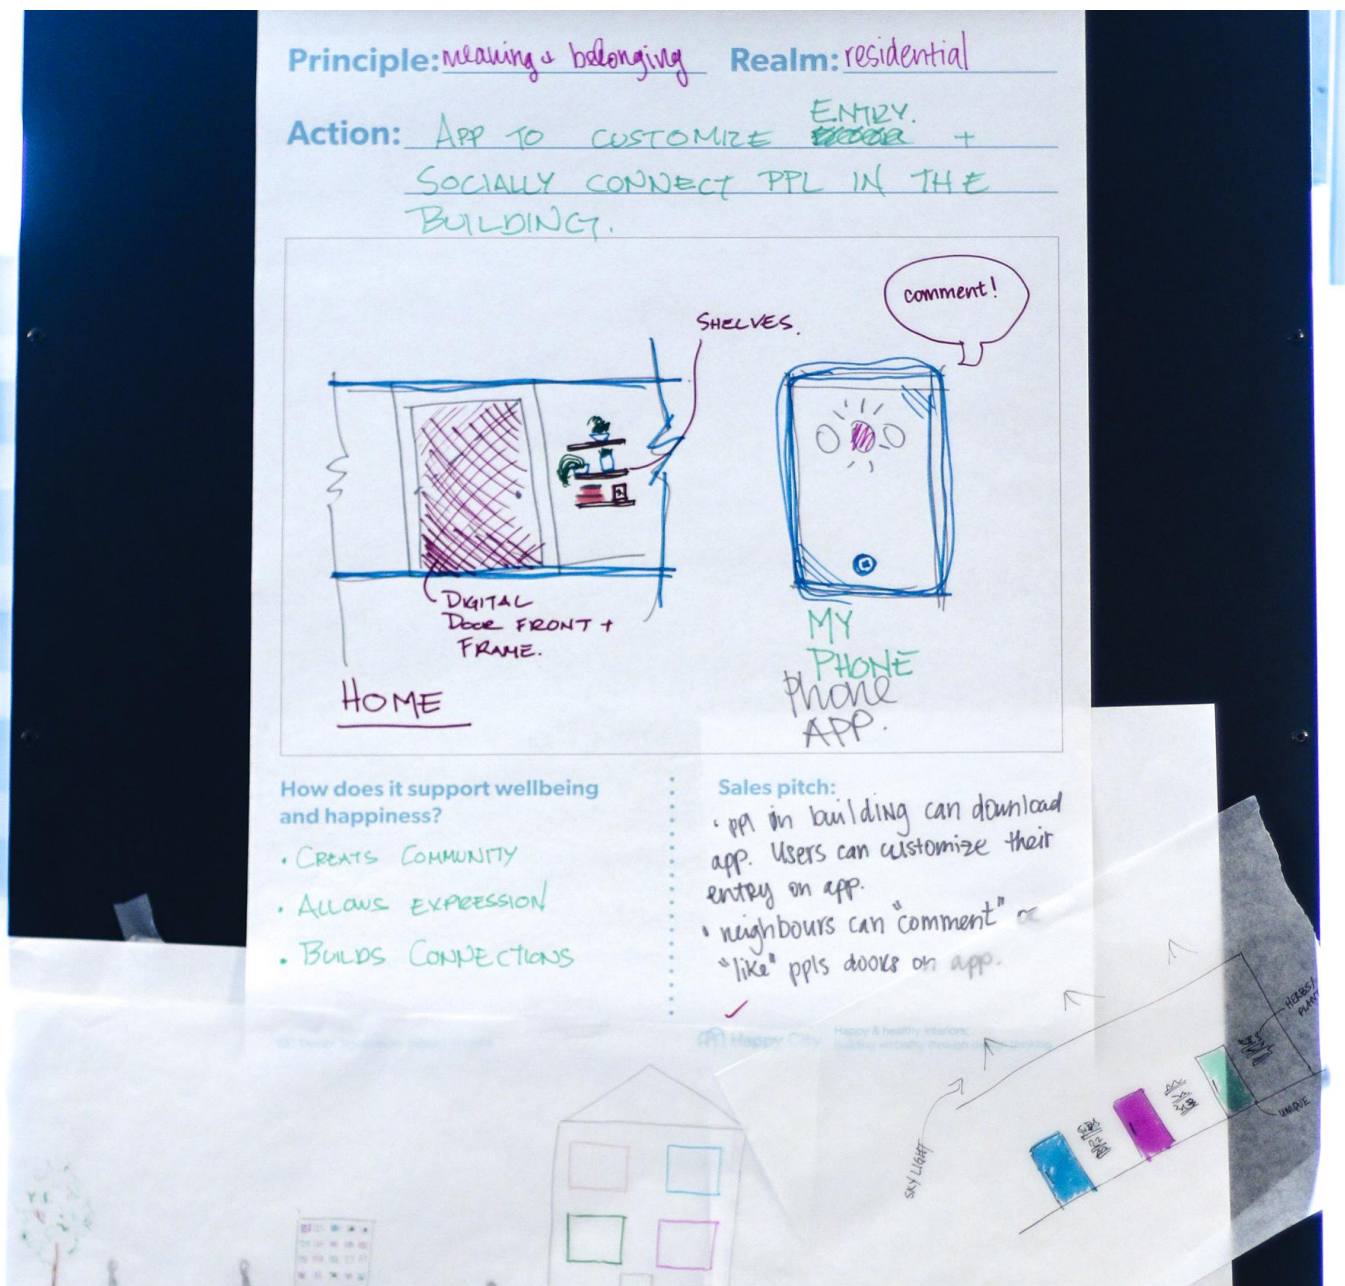 Principle: meaning + belonging
Realm: residential
Action: APP TO CUSTOMIZE ENTRY. +
SOCIALLY CONNECT PPL IN THE
BUILDING.
comment!
SHELVES.
DIGITAL
DOOR FRONT +
FRAME.
HOME
MY
PHONE
Phone
APP.
How does it support wellbeing
and happiness?
• CREATS COMMUNITY
• ALLOWS EXPRESSION
• BUILDS CONNECTIONS
Sales pitch:
• ppl in building can download
app. Users can customize their
entry on app.
• neighbours can "comment" or
"like" ppls doors on app.
Happy City
Happy & healthy interiors:
HERBS/
PLANT
UNIQUE
SKY LIGHT